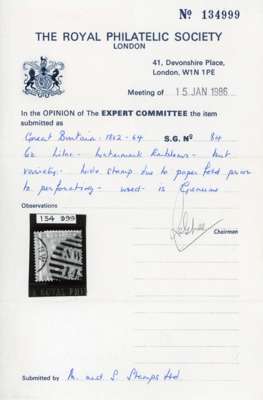 Nº 134999
THE ROYAL PHILATELIC SOCIETY
LONDON
41, Devonshire Place,
London, W1N 1PE
Meeting of 15 JAN 1986
In the OPINION of The EXPERT COMMITTEE the item
submitted as
Great Britain - 1862-64 S.G. Nº 84
6d Lilac - Watermark
variety - stamp due to paper fold prior
to perforating - used is Genuine
Observations
134 999
Chairman
Submitted by M. and S. Stamps Ltd